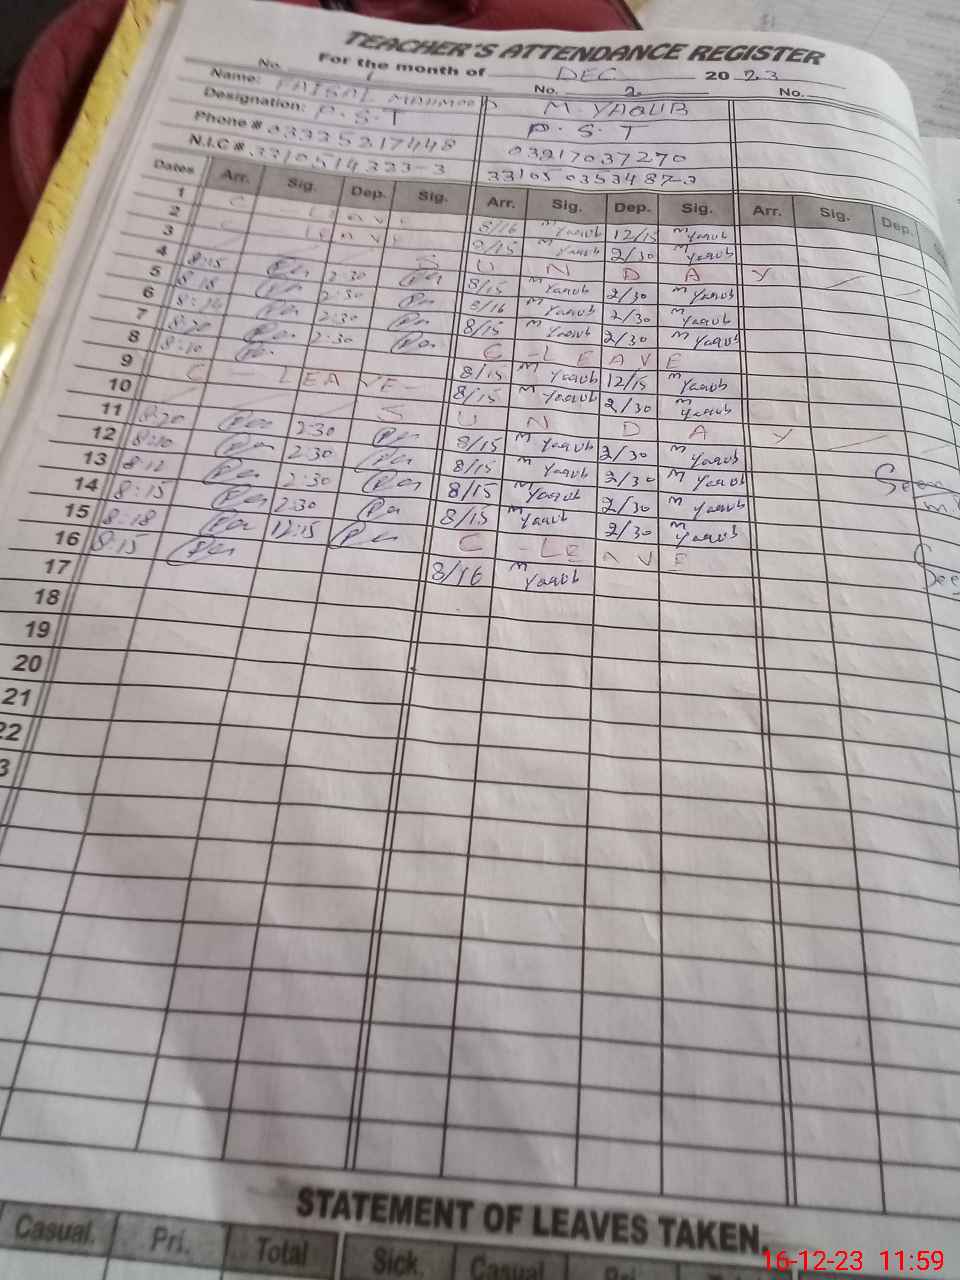 TEACHER'S ATTENDANCE REGISTER
For the month of DEC 2023
No. 1 No. 2 No.
Name: FAISAL MAHMOOD M. YAQUB
Designation: P.S.T P.S.T
Phone # 03335217448 03217037270
N.I.C #
Dates Arr. Sig. Dep. Sig. Arr. Sig. Dep. Sig. Arr. Sig. Dep.
1 C LEAVE 8/16 M Yaqub 12/15 M Yaqub
2 LEAVE 8/15 M Yaqub 2/30 M Yaqub
3 S U N D A Y
4 8:15 2:30 8/15 M Yaqub 2/30 M Yaqub
5 8:18 2:30 8/16 M Yaqub 2/30 M Yaqub
6 2:30 8/15 M Yaqub 2/30 M Yaqub
7 8:20 2:30 C - LEAVE
8 8:10 8/15 M Yaqub 12/15 M Yaqub
9 C - LEAVE 8/15 M Yaqub 2/30 M Yaqub
10 S U N D A Y
11 8:20 2:30 8/15 M Yaqub 2/30 M Yaqub
12 8:10 2:30 8/15 M Yaqub 2/30 M Yaqub
13 8:12 2:30 8/15 M Yaqub 2/30 M Yaqub
14 8:15 2:30 8/15 M Yaqub 2/30 M Yaqub
15 8:18 12:15 C - LEAVE
16 8:15 8/16 M Yaqub
17
18
19
20
21
22
3
Seen
STATEMENT OF LEAVES TAKEN.
Casual. Pri. Total Sick. Casual Pri.
16-12-23 11:59